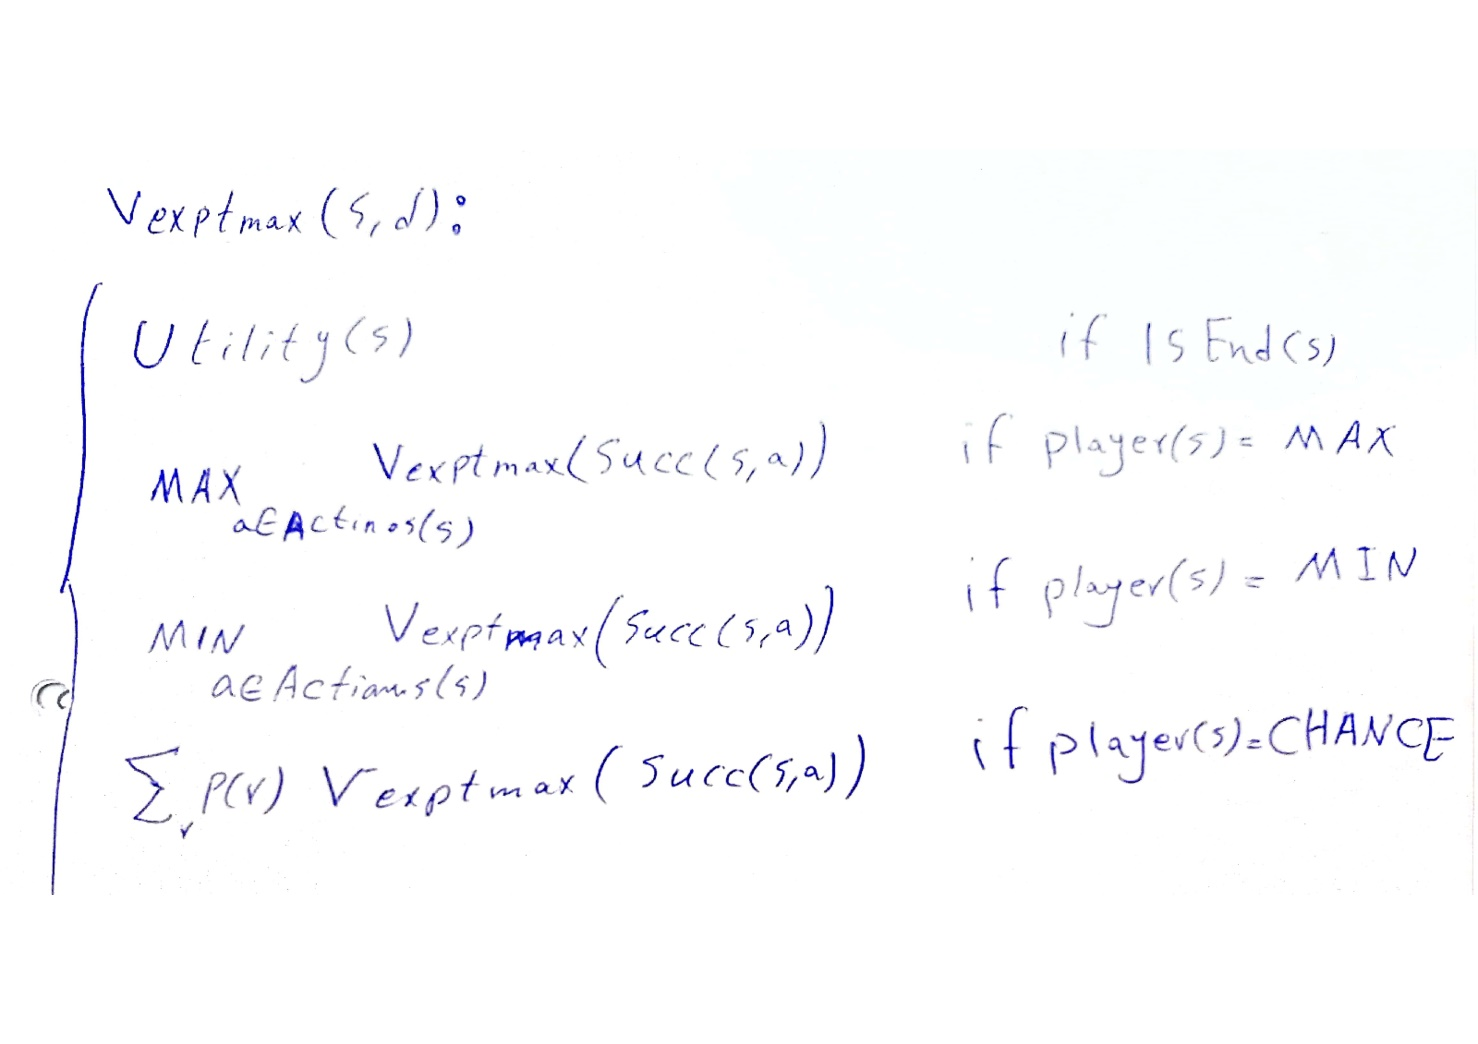 Vexptmax(s,d):
Utility(s) if IsEnd(s)
MAX a∈Actinos(s) Vexptmax(Succ(s,a)) if player(s)= MAX
MIN a∈Actions(s) Vexptmax(Succ(s,a)) if player(s) = MIN
∑r P(r) Vexptmax(Succ(s,a)) if player(s)=CHANCE